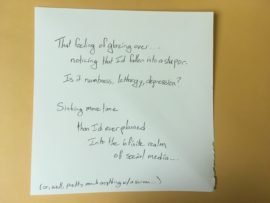 That feeling of glazing over...
noticing that I'd fallen into a stupor.
Is it numbness, lethargy, depression?
Sinking more time
than I'd ever planned
Into the infinite realm
of social media...
(or, well, pretty much anything w/ a screen...)